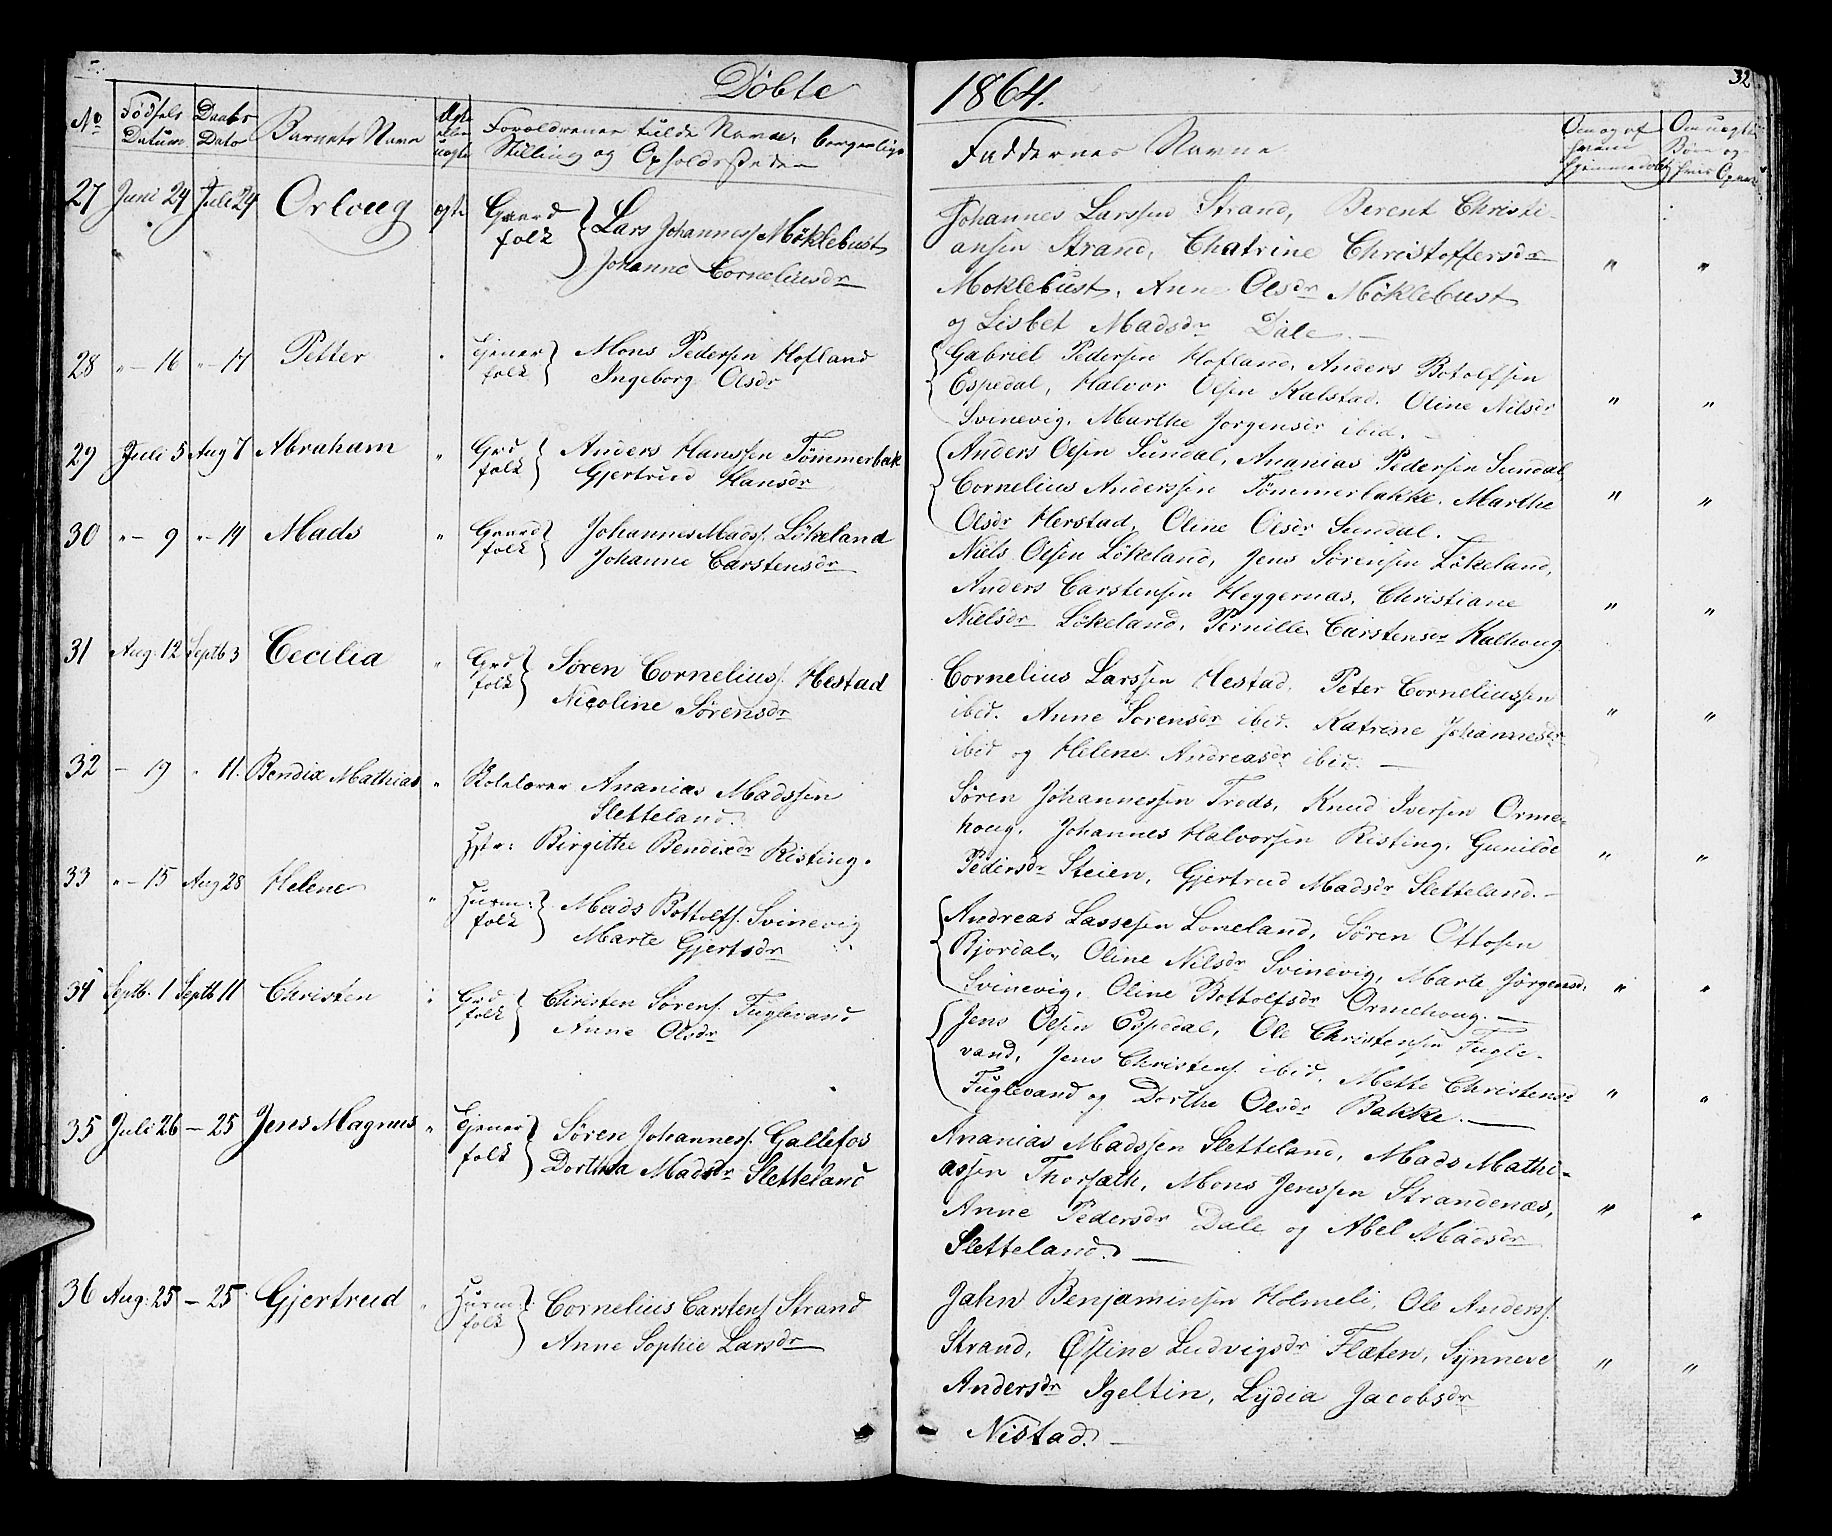 Døbte 1864. 32
No Fødsels Datum Daabs Dato Barnets Navn Ægte eller uægte Forældrenes fulde Navne, borgerlige Stilling og Opholdssted Faddernes Navne Om og af hvem hjemmedøbt
27 Juni 24 Juli 24 Orloug ægte Gaard folk Lars Johanness. Möklebust
Johanne Corneliusdr
Johannes Larssen Strand, Berent Christi-
ansen Strand, Chatrine Christoffersdr
Möklebust, Anne Olsdr Möklebust
og Lisbet Madsdr Dale. —
28 " — 16 " — 17 Petter " Tjener folk Mons Pedersen Hofland
Ingeborg Olsdr
Gabriel Pedersen Hofland, Anders Botolfsen
Espedal, Halvor Olsen Kalstad. Oline Nilsdr
Svinevig, Marthe Jorgensdr ibid. —
29 Juli 5 Aug 7 Abraham " Grd folk Anders Hanssen Tömmerbak
Gjertrud Hansdr
Anders Olsen Sundal, Ananias Pedersen Sundal,
Cornelius Anderssen Tömmerbakke, Marthe
Olsdr Herstad, Oline Olsdr Sundal.
30 " — 9 " — 14 Mads " Gaard folk Johannes Madss. Lökeland
Johanne Carstensdr
Niels Olsen Lökeland, Jens Sörensen Lökeland,
Anders Carstensen Heggernæs, Christiane
Nielsdr Lökeland, Pernille Carstensdr Kalhoug
31 Aug. 12 Septb 3 Cecilia " Grd folk Sören Corneliuss. Hestad
Nicoline Sörensdr
Cornelius Larssen Hestad, Peter Corneliussen
ibid. Anne Sorensdr ibid. Katrine Johannesdr
ibid og Helene Andreasdr ibid. —
32 — 19 " 11. Bendix Mathias " Skolelærer Ananias Madssen
Sletteland.
Hstr: Birgithe Bendixdr Risting.
Sören Johannessen Trods, Knud Iversen Orme-
houg, Johannes Halvorsen Risting, Gunilde
Pedersdr Steien, Gjertrud Madsdr Sletteland. —
33 " — 15 Aug 28 Helene " Huusm: folk Mads Bottolfs. Svinevig
Marte Gjertsdr
Andreas Lassesen Loneland, Sören Ottosen
Bjordal, Oline Nilsdr Svinevig, Marte Jörgensd.
Svinevig, Oline Bottolfsdr Ormehoug. —
34 Septb. 1 Septb 11 Christen " Grd folk Christen Sörens. Fuglevand
Anne Olsdr
Jens Olsen Espedal, Ole Christensen Fugle-
vand, Jens Christens. ibid, Mette Christensd
Fuglevand og Dorthe Olsdr Bakke. —
35 Juli 26 — 25 Jens Magnus " Tjener folk Sören Johanness. Gallefos
Dorthea Madsdr Sletteland
Ananias Madssen Sletteland, Mads Mathi-
assen Thorsæth, Mons Jenssen Strandenæs,
Anne Pedersdr Dale og Abel Madsdr
Sletteland. —
36 Aug. 25 — 25 Gjertrud " Huusm: folk Cornelius Carstens. Strand
Anne Sophie Larsdr
Jahn Benjaminsen Holmeli, Ole Anderss.
Strand, Østine Ludvigsdr Flæten, Synneve
Andersdr Igeltin, Lydia Jacobsdr
Nistad. —